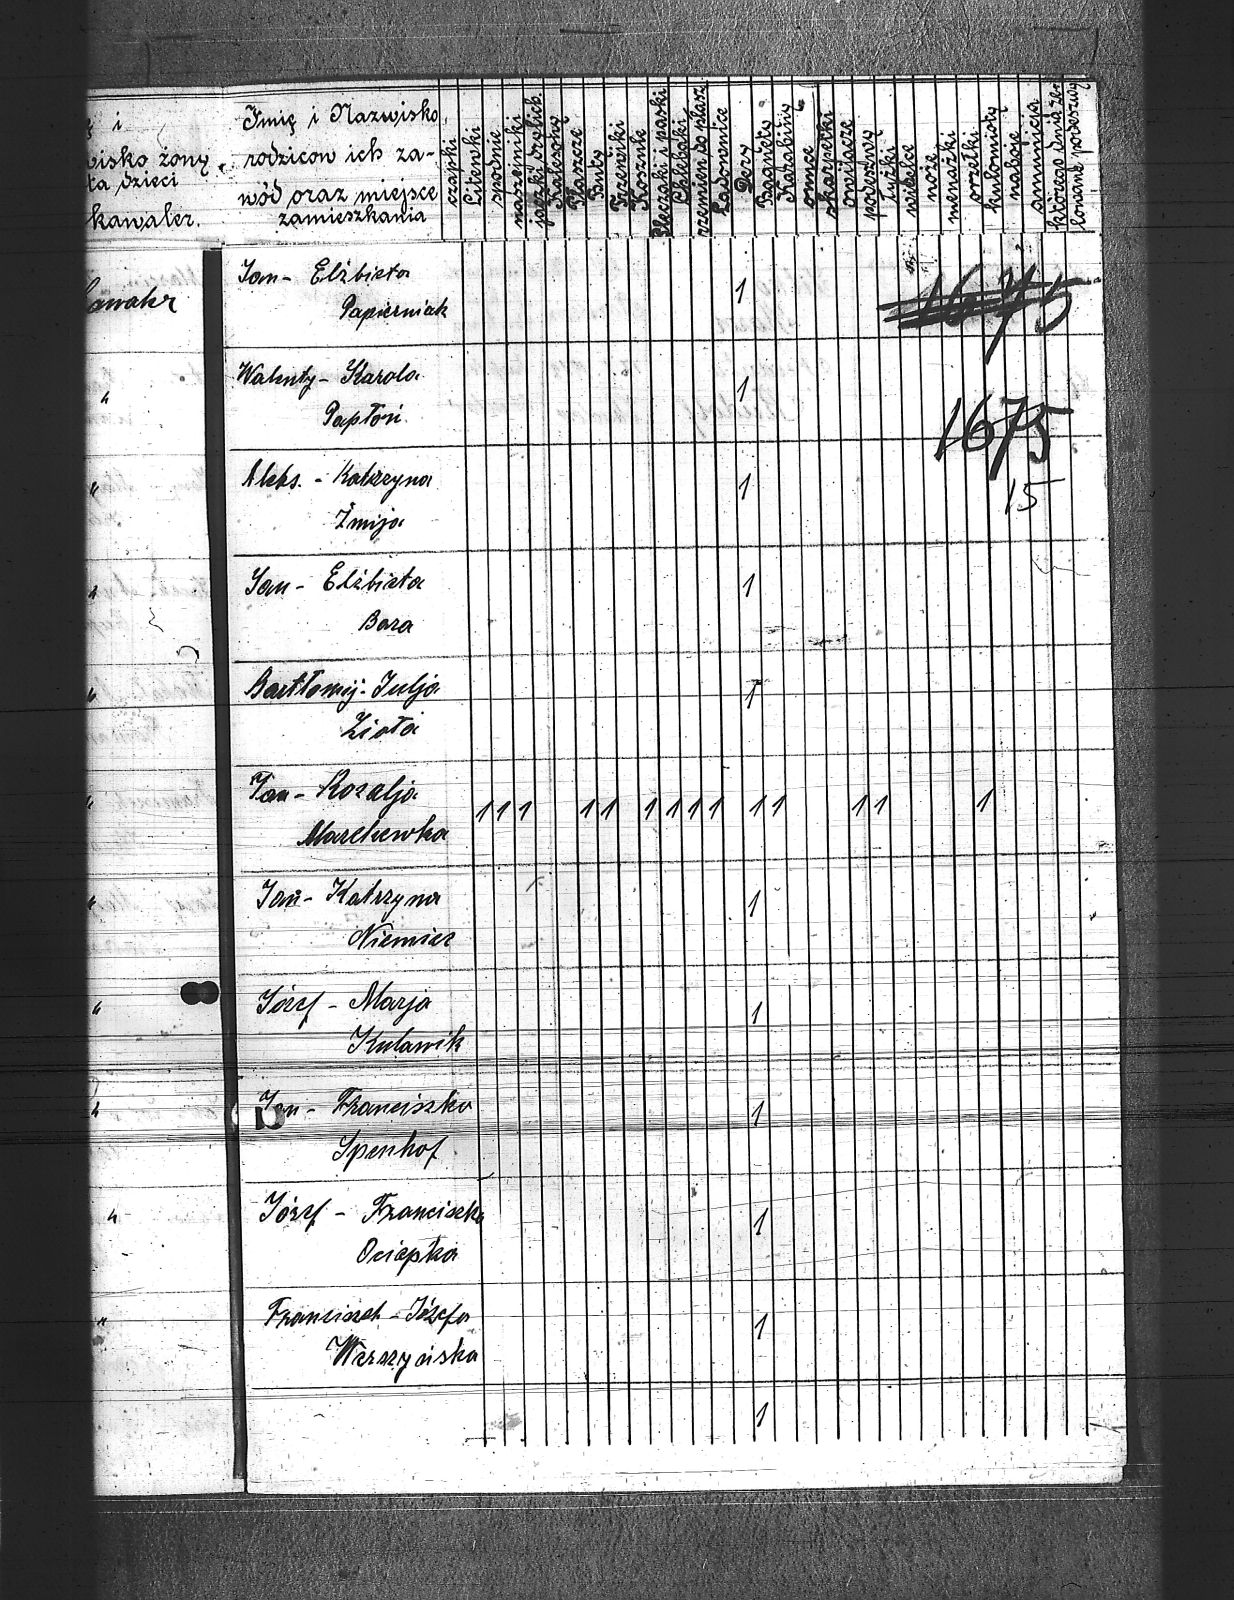 i
wisko żony
ta dzieci
kawaler.
Imię i Nazwisko
rodziców ich za-
wód oraz miejsce
zamieszkania
czapki
Litewki
spodnie
naszeniki
Kalesony
Płaszcze
Buty
Trzewiki
Koszule
Plecaki i paski
Chlebaki
rzemień do płasz
Ładownice
Dery
Bagnety
Karabiny
onuce
skarpetki
owijacze
łyżki
widelce
noże
menażki
orzełki
naboje
amunicja
Jan - Elżbieta
Papierniak
1
1675
Walenty - Karola
Papłoń
1
1675
"
Aleks. - Katarzyna
Żmija
1
15
"
Jan - Elżbieta
Bara
1
"
Bartłomiej - Julja
Zioła
1
"
Jan - Rozalja
Marchewka
1 1 1 1 1 1 1 1 1 1 1 1 1 1
"
Jan - Katrzyna
Niemiec
1
"
Józef - Marja
Kulawik
1
"
Jan - Franciszka
Spenhof
1
"
Józef - Franciszka
Ociepka
1
"
Franciszek - Józefa
Warszyńska
1
1